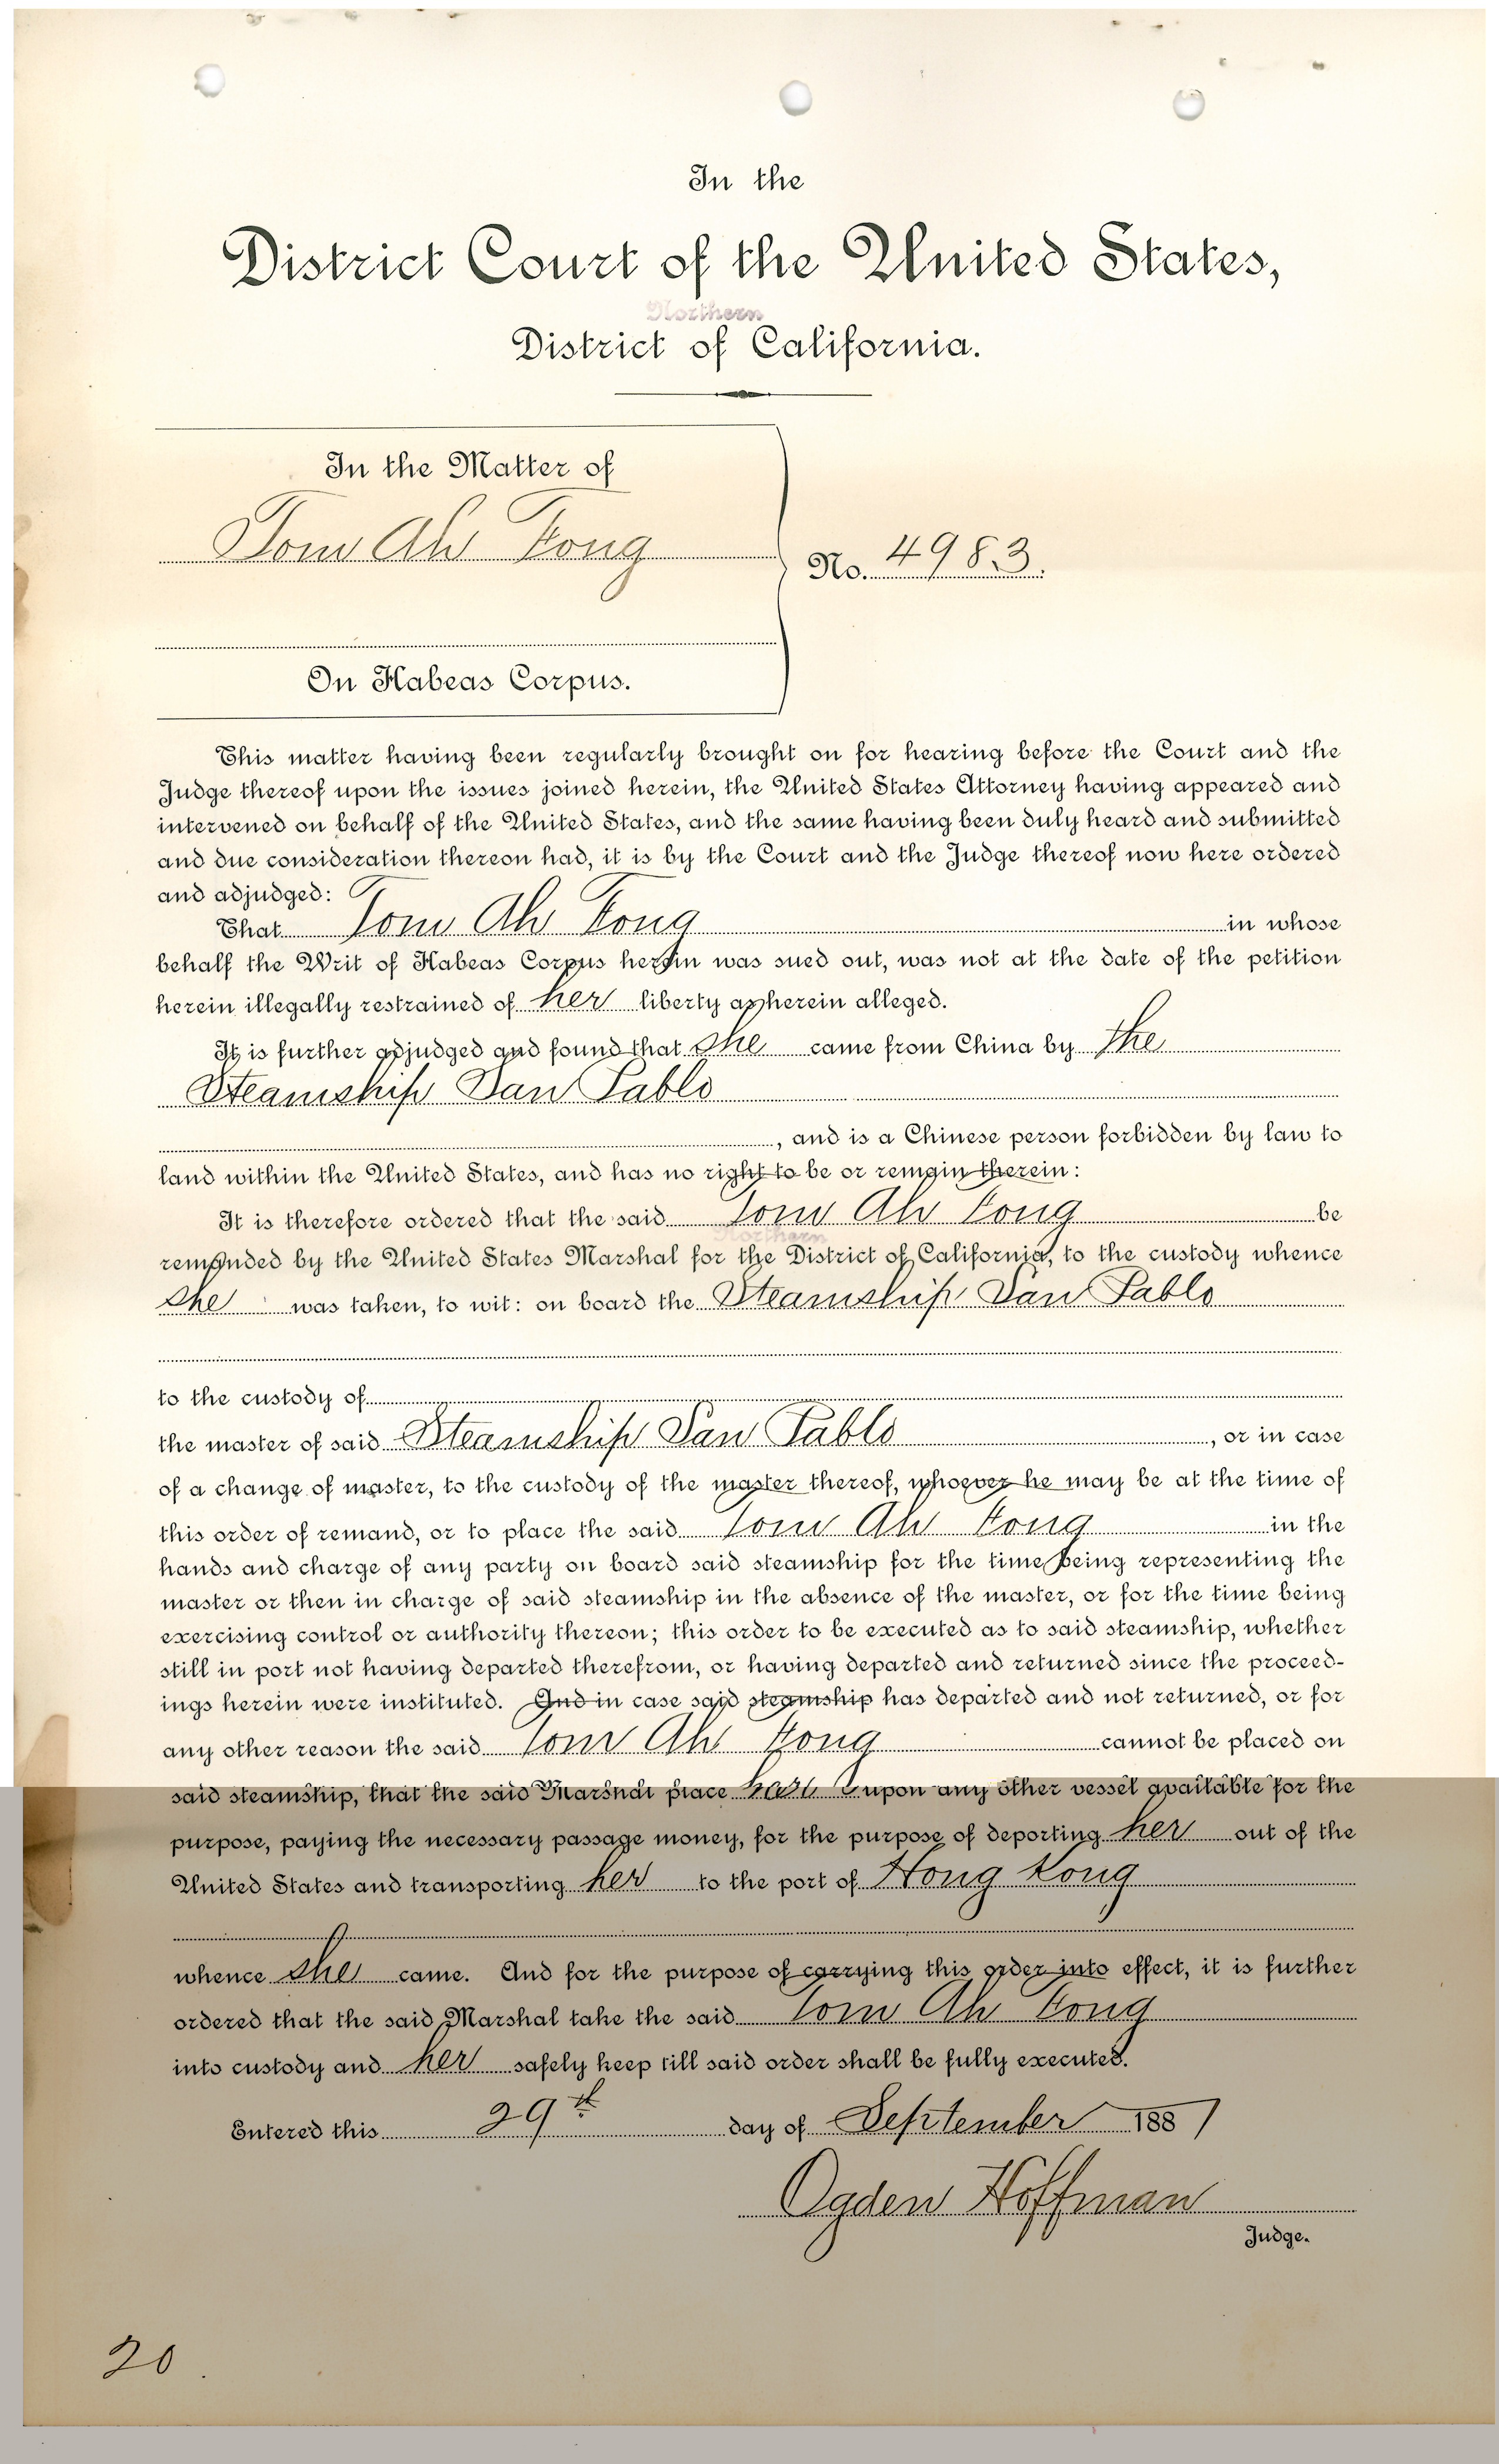 In the
District Court of the United States,
Northern
District of California.
In the Matter of
Tom Ah Fong
No. 4983.
On Habeas Corpus.
This matter having been regularly brought on for hearing before the Court and the
Judge thereof upon the issues joined herein, the United States Attorney having appeared and
intervened on behalf of the United States, and the same having been duly heard and submitted
and due consideration thereon had, it is by the Court and the Judge thereof now here ordered
and adjudged:
That Tom Ah Fong in whose
behalf the Writ of Habeas Corpus herein was sued out, was not at the date of the petition
herein illegally restrained of her liberty as herein alleged.
It is further adjudged and found that She came from China by the
Steamship San Pablo
, and is a Chinese person forbidden by law to
land within the United States, and has no right to be or remain therein:
It is therefore ordered that the said Tom Ah Fong be
Northern
remanded by the United States Marshal for the District of California, to the custody whence
She was taken, to wit: on board the Steamship San Pablo
to the custody of
the master of said Steamship San Pablo, or in case
of a change of master, to the custody of the master thereof, whoever he may be at the time of
this order of remand, or to place the said Tom Ah Fong in the
hands and charge of any party on board said steamship for the time being representing the
master or then in charge of said steamship in the absence of the master, or for the time being
exercising control or authority thereon; this order to be executed as to said steamship, whether
still in port not having departed therefrom, or having departed and returned since the proceed-
ings herein were instituted. And in case said steamship has departed and not returned, or for
any other reason the said Tom Ah Fong cannot be placed on
said steamship, that the said Marshal place upon any other vessel available for the
purpose, paying the necessary passage money, for the purpose of deporting her out of the
United States and transporting her to the port of Hong Kong
whence She came. And for the purpose of carrying this order into effect, it is further
ordered that the said Marshal take the said Tom Ah Fong
into custody and her safely keep till said order shall be fully executed.
Entered this 29th day of September 1887
Ogden Hoffman
Judge.
20